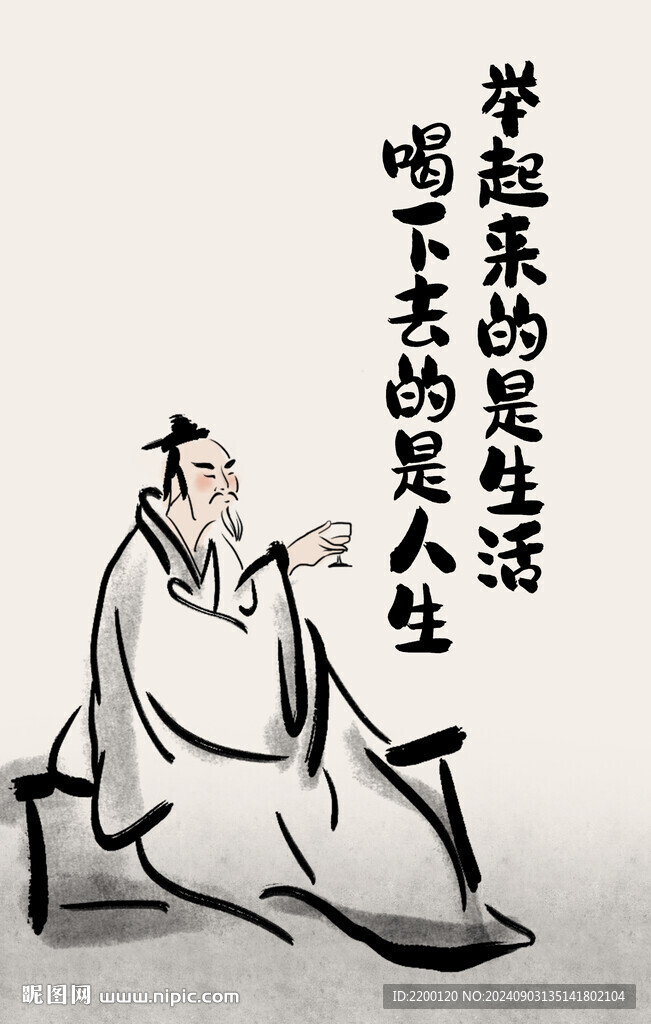 举起来的是生活
喝下去的是人生
昵图网 www.nipic.com
ID:2200120 NO:20240903135141802104